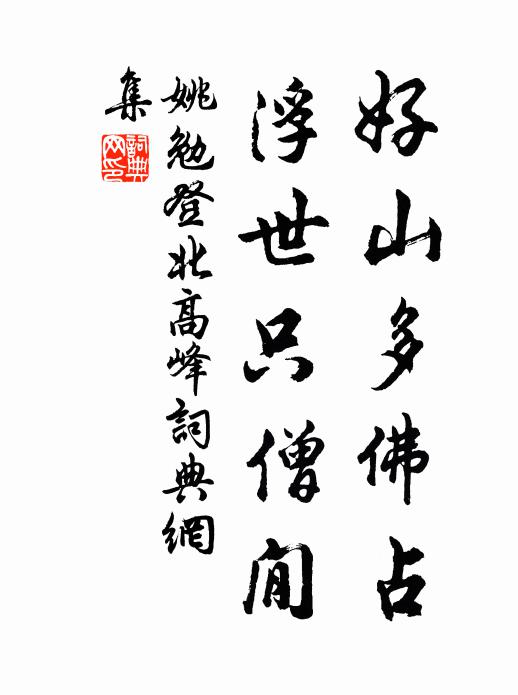 好山多佛占
浮世只僧閒
姚勉登北高峰詞典網
集
詞典網印